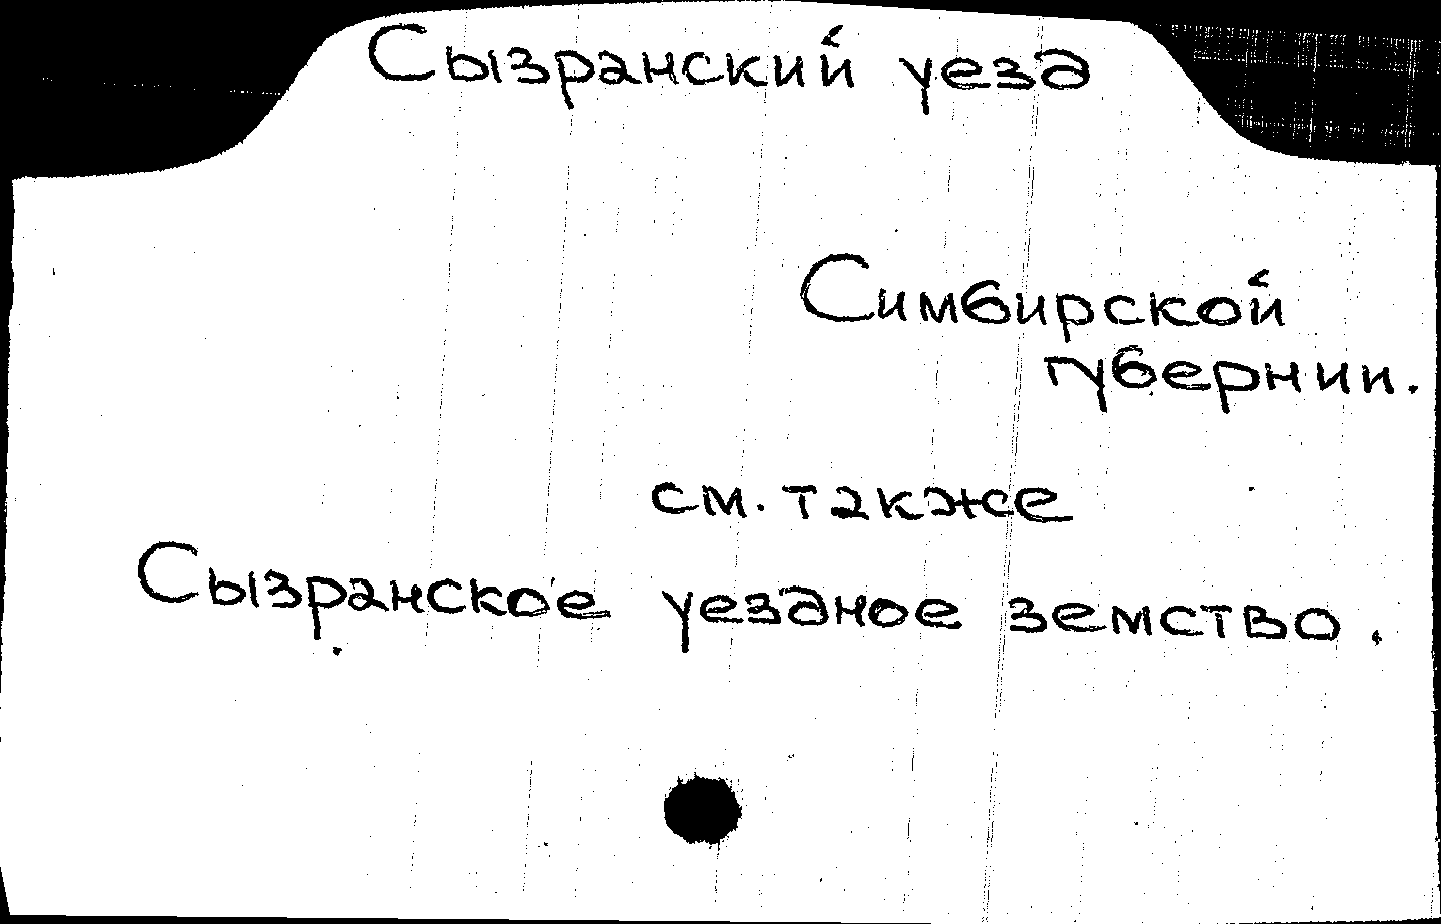 Сызранский уезд
Симбирской
губернии.
см. также
Сызранское уездное земство.